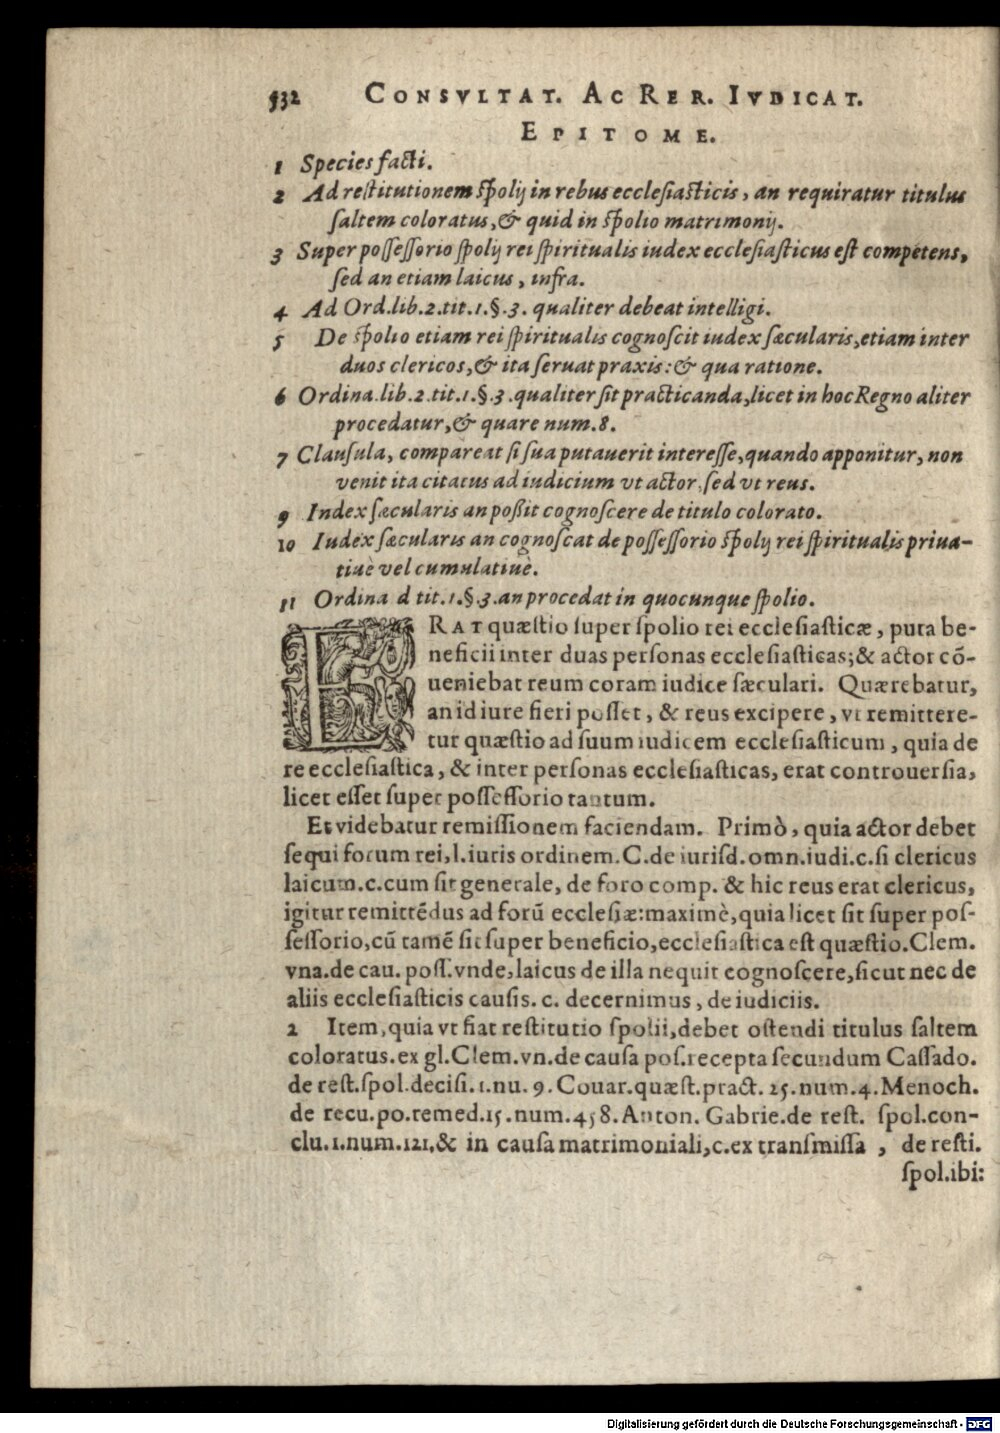 532 CONSVLTAT. AC RER. IVDICAT.
EPITOME.
1 Species facti.
2 Ad restitutionem spolij in rebus ecclesiasticis, an requiratur titulus
saltem coloratus, & quid in spolio matrimonij.
3 Super possessorio spolij rei spiritualis iudex ecclesiasticus est competens,
sed an etiam laicus, infra.
4 Ad Ord.lib.2.tit.1.§.3. qualiter debeat intelligi.
5 De spolio etiam rei spiritualis cognoscit iudex sæcularis, etiam inter
duos clericos, & ita seruat praxis: & qua ratione.
6 Ordina.lib.2.tit.1.§.3.qualiter sit practicanda, licet in hoc Regno aliter
procedatur, & quare num.8.
7 Clausula, compareat si sua putauerit interesse, quando apponitur, non
venit ita citatus ad iudicium vt actor, sed vt reus.
9 Iudex sæcularis an possit cognoscere de titulo colorato.
10 Iudex sæcularis an cognoscat de possessorio spolij rei spiritualis priua-
tiuè vel cumulatiuè.
11 Ordina d tit.1.§.3.an procedat in quocunque spolio.
ERAT quæstio super spolio rei ecclesiasticæ, puta be-
neficii inter duas personas ecclesiasticas; & actor cõ-
ueniebat reum coram iudice sæculari. Quærebatur,
an id iure fieri posset, & reus excipere, vt remittere-
tur quæstio ad suum iudicem ecclesiasticum, quia de
re ecclesiastica, & inter personas ecclesiasticas, erat controuersia,
licet esset super possessorio tantum.
Et videbatur remissionem faciendam. Primò, quia actor debet
sequi forum rei, l.iuris ordinem.C.de iurisd.omn.iudi.c.si clericus
laicum.c.cum sit generale, de foro comp. & hic reus erat clericus,
igitur remittẽdus ad forũ ecclesiæ: maximè, quia licet sit super pos-
sessorio, cũ tamẽ sit super beneficio, ecclesiastica est quæstio. Clem.
vna.de cau. poss.vnde, laicus de illa nequit cognoscere, sicut nec de
aliis ecclesiasticis causis. c. decernimus, de iudiciis.
2 Item, quia vt fiat restitutio spolii, debet ostendi titulus saltem
coloratus.ex gl.Clem.vn.de causa pos.recepta secundum Cassado.
de rest.spol.decisi.1.nu. 9. Couar.quæst.pract. 25.num.4.Menoch.
de recu.po.remed.15.num.458.Anton. Gabrie.de rest. spol.con-
clu.1.num.121.& in causa matrimoniali, c.ex transmissa, de resti.
spol.ibi:
Digitalisierung gefördert durch die Deutsche Forschungsgemeinschaft - DFG